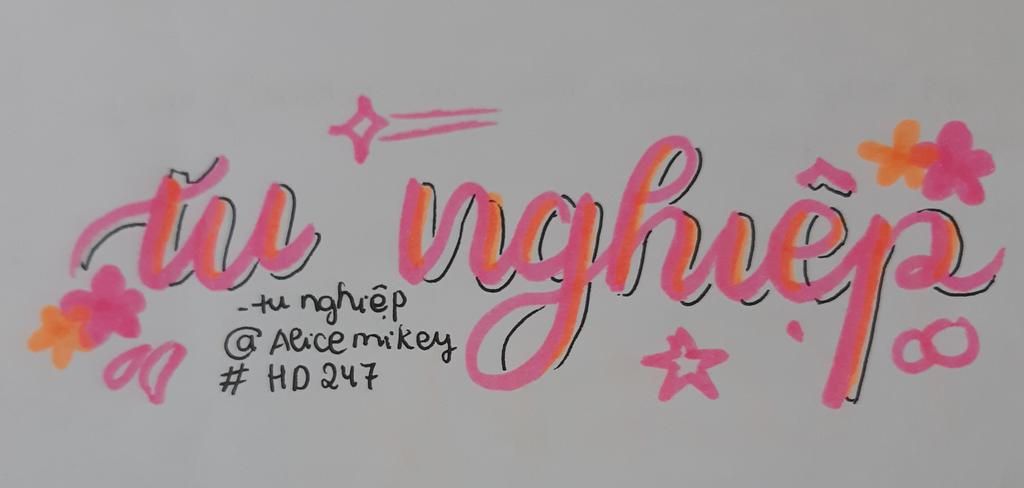 tu nghiệp
-tu nghiệp
@Alicemikey
# HD247